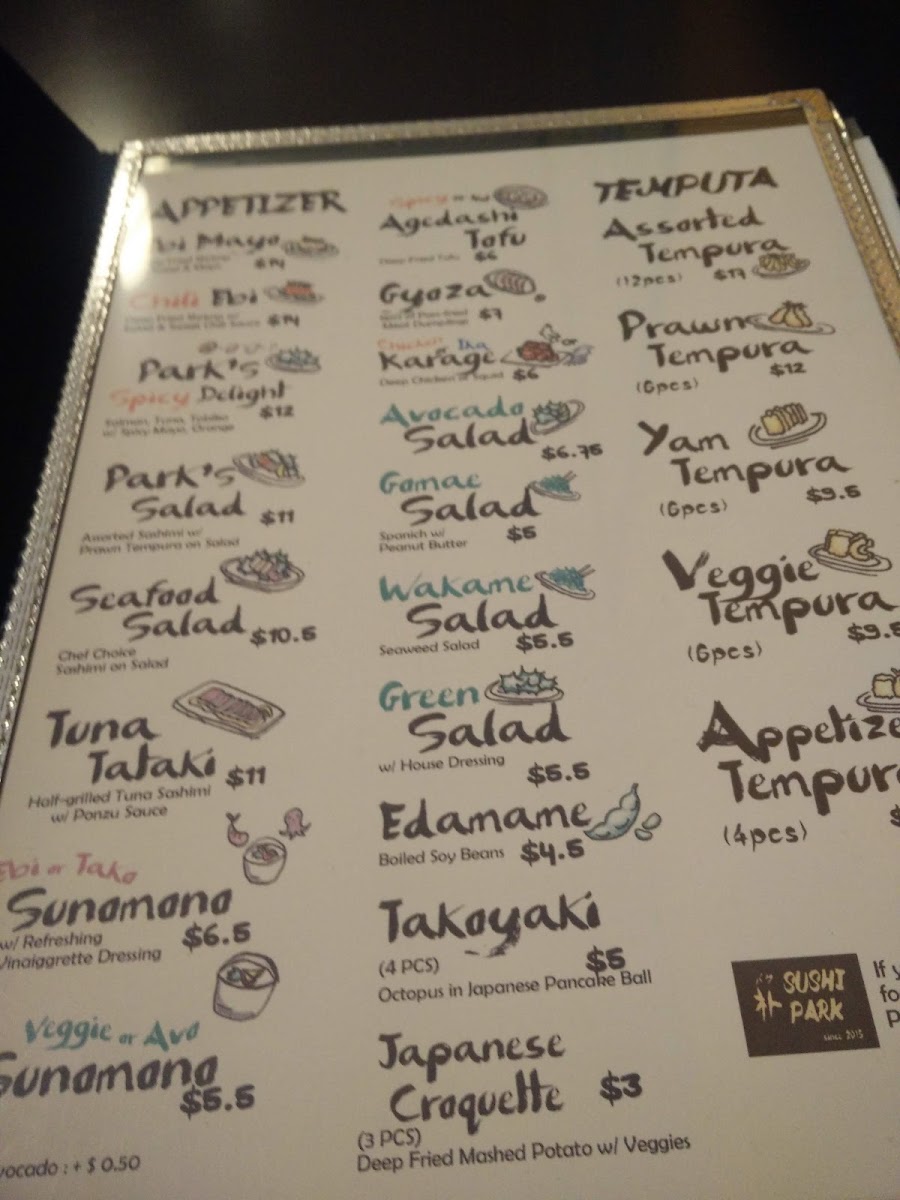 APPETIZER
Ebi Mayo
$14
Chili Ebi
$14
Park's
Spicy Delight
$12
Salmon, Tuna, Tobiko
w/ Spicy Mayo, Orange
Park's
Salad
$11
Assorted Sashimi w/
Prawn Tempura on Salad
Seafood
Salad
$10.5
Chef Choice
Sashimi on Salad
Tuna
Tataki
$11
Half-grilled Tuna Sashimi
w/ Ponzu Sauce
Ebi or Tako
Sunomono
w/ Refreshing
$6.5
Vinaiggrette Dressing
Veggie or Avo
Sunomono
$5.5
vocado : + $ 0.50
Spicy
Agedashi
Tofu
Deep Fried Tofu
$6
Gyoza
$7
Chicken Ika
or
Karage
Deep Chicken or Squid
$6
Avocado
Salad
$6.75
Gomae
Salad
Spanich w/
Peanut Butter
$5
Wakame
Salad
Seaweed Salad
$5.5
Green
Salad
w/ House Dressing
$5.5
Edamame
Boiled Soy Beans
$4.5
Takoyaki
(4 PCS)
$5
Octopus in Japanese Pancake Ball
Japanese
Croquette
$3
(3 PCS)
Deep Fried Mashed Potato w/ Veggies
TEMPUTA
Assorted
Tempura
(12pcs)
$17
Prawn
Tempura
(6pcs)
$12
Yam
Tempura
(6pcs)
$9.5
Veggie
Tempura
(6pcs)
$9.5
Appetize
Tempur
(4pcs)
$
朴
SUSHI
PARK
since 2015
If y
fo
P